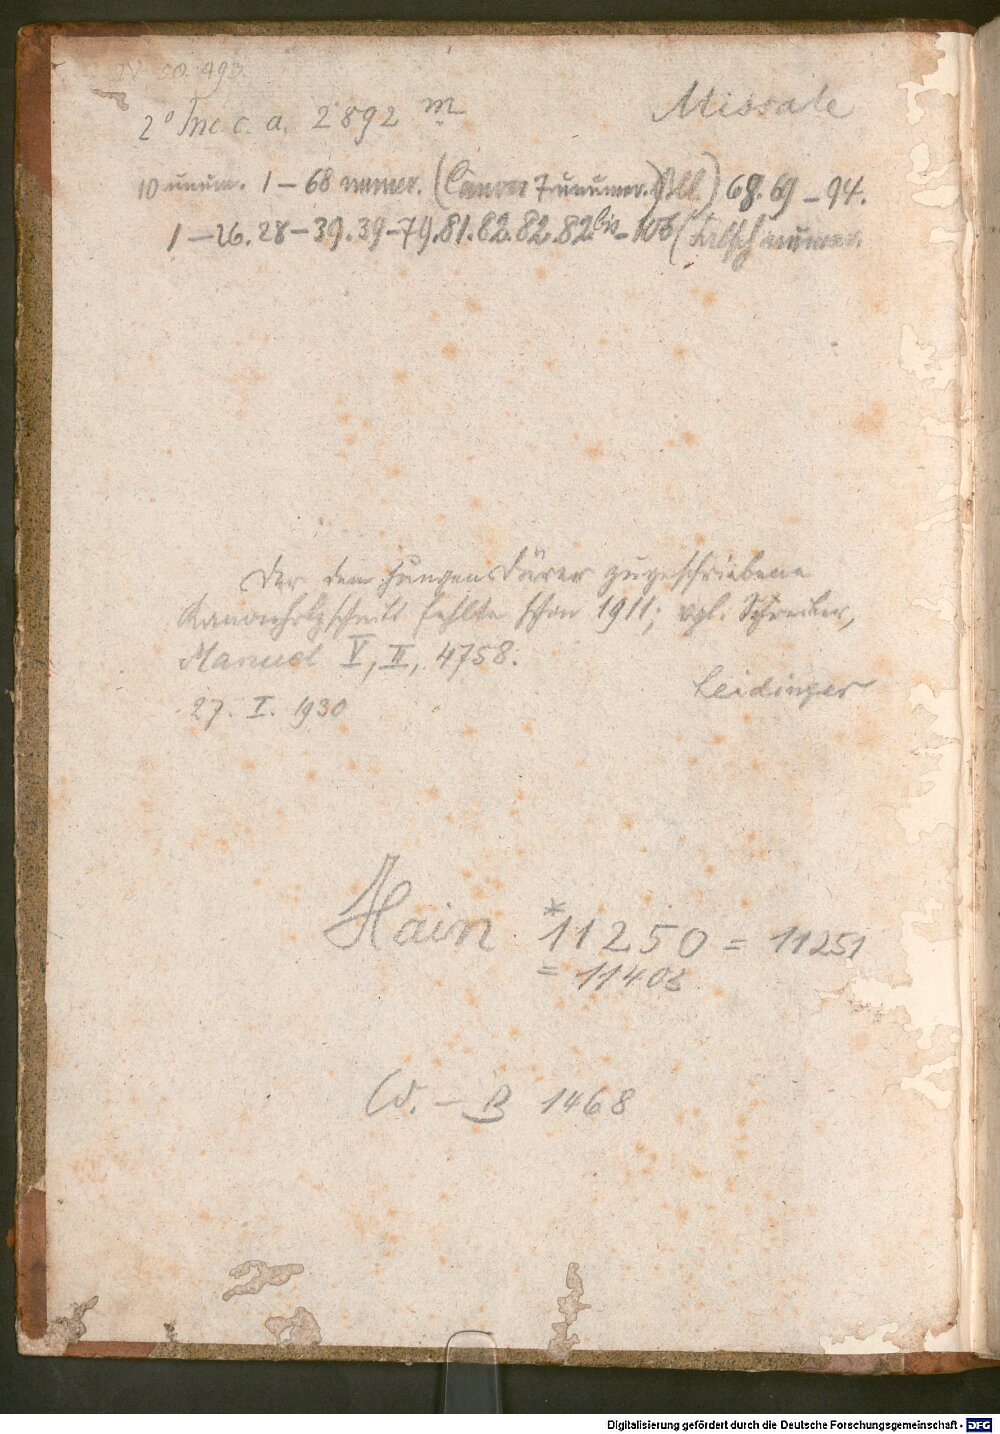 IV 50. 493.
2° Inc. c. a. 2892 m
Missale
10 unum. 1 – 68 numer. (Canon 7 unumer. Bll.) 68. 69 – 94.
1 – 26. 28 – 39. 39 – 79. 81. 82. 82. 82 bis – 106 (falsch numer.
Der dem jungen Dürer zugeschriebene
Kanonholzschnitt fehlte schon 1911; vgl. Schreiber,
Manuel V, II, 4758.
Leidinger
27. I. 1930
Hain *11250 = 11251
= 11408
W. – B 1468
Digitalisierung gefördert durch die Deutsche Forschungsgemeinschaft - DFG